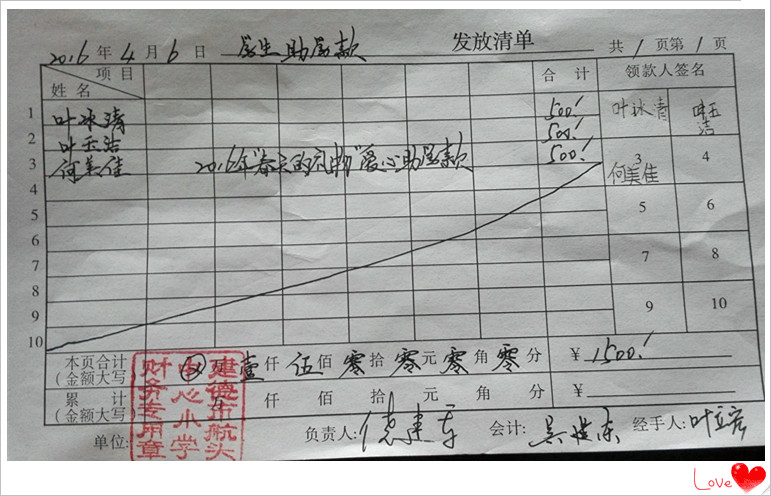 2016年4月6日 学生助学款 发放清单 共1页第1页
项目 合计 领款人签名
姓名
1 叶冰清 500! 叶冰清 叶玉洁
2 叶玉洁 500!
3 何美佳 2016年"春天的礼物"爱心助学款 500! 3 何美佳 4
4
5 5 6
6
7 7 8
8
9 9 10
10
本页合计 万壹仟伍佰零拾零元零角零分 ¥1500!
(金额大写)
累计 万仟佰拾元角分 ¥
(金额大写)
单位: 负责人: 会计: 经手人:叶立宏
建德市航头
中心小学
财务专用章
Love